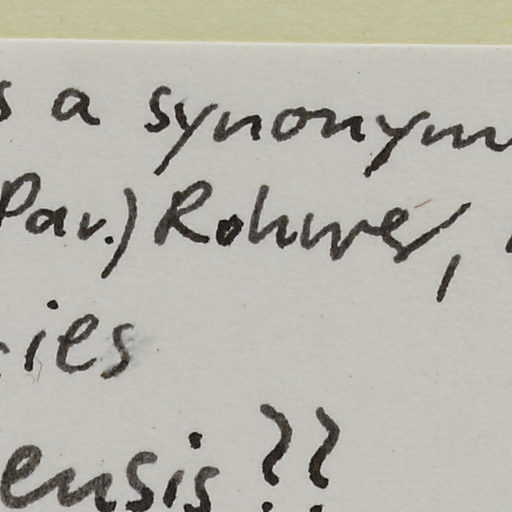 s a synonym
Pav.) Rohwer,
cies
ensis ??